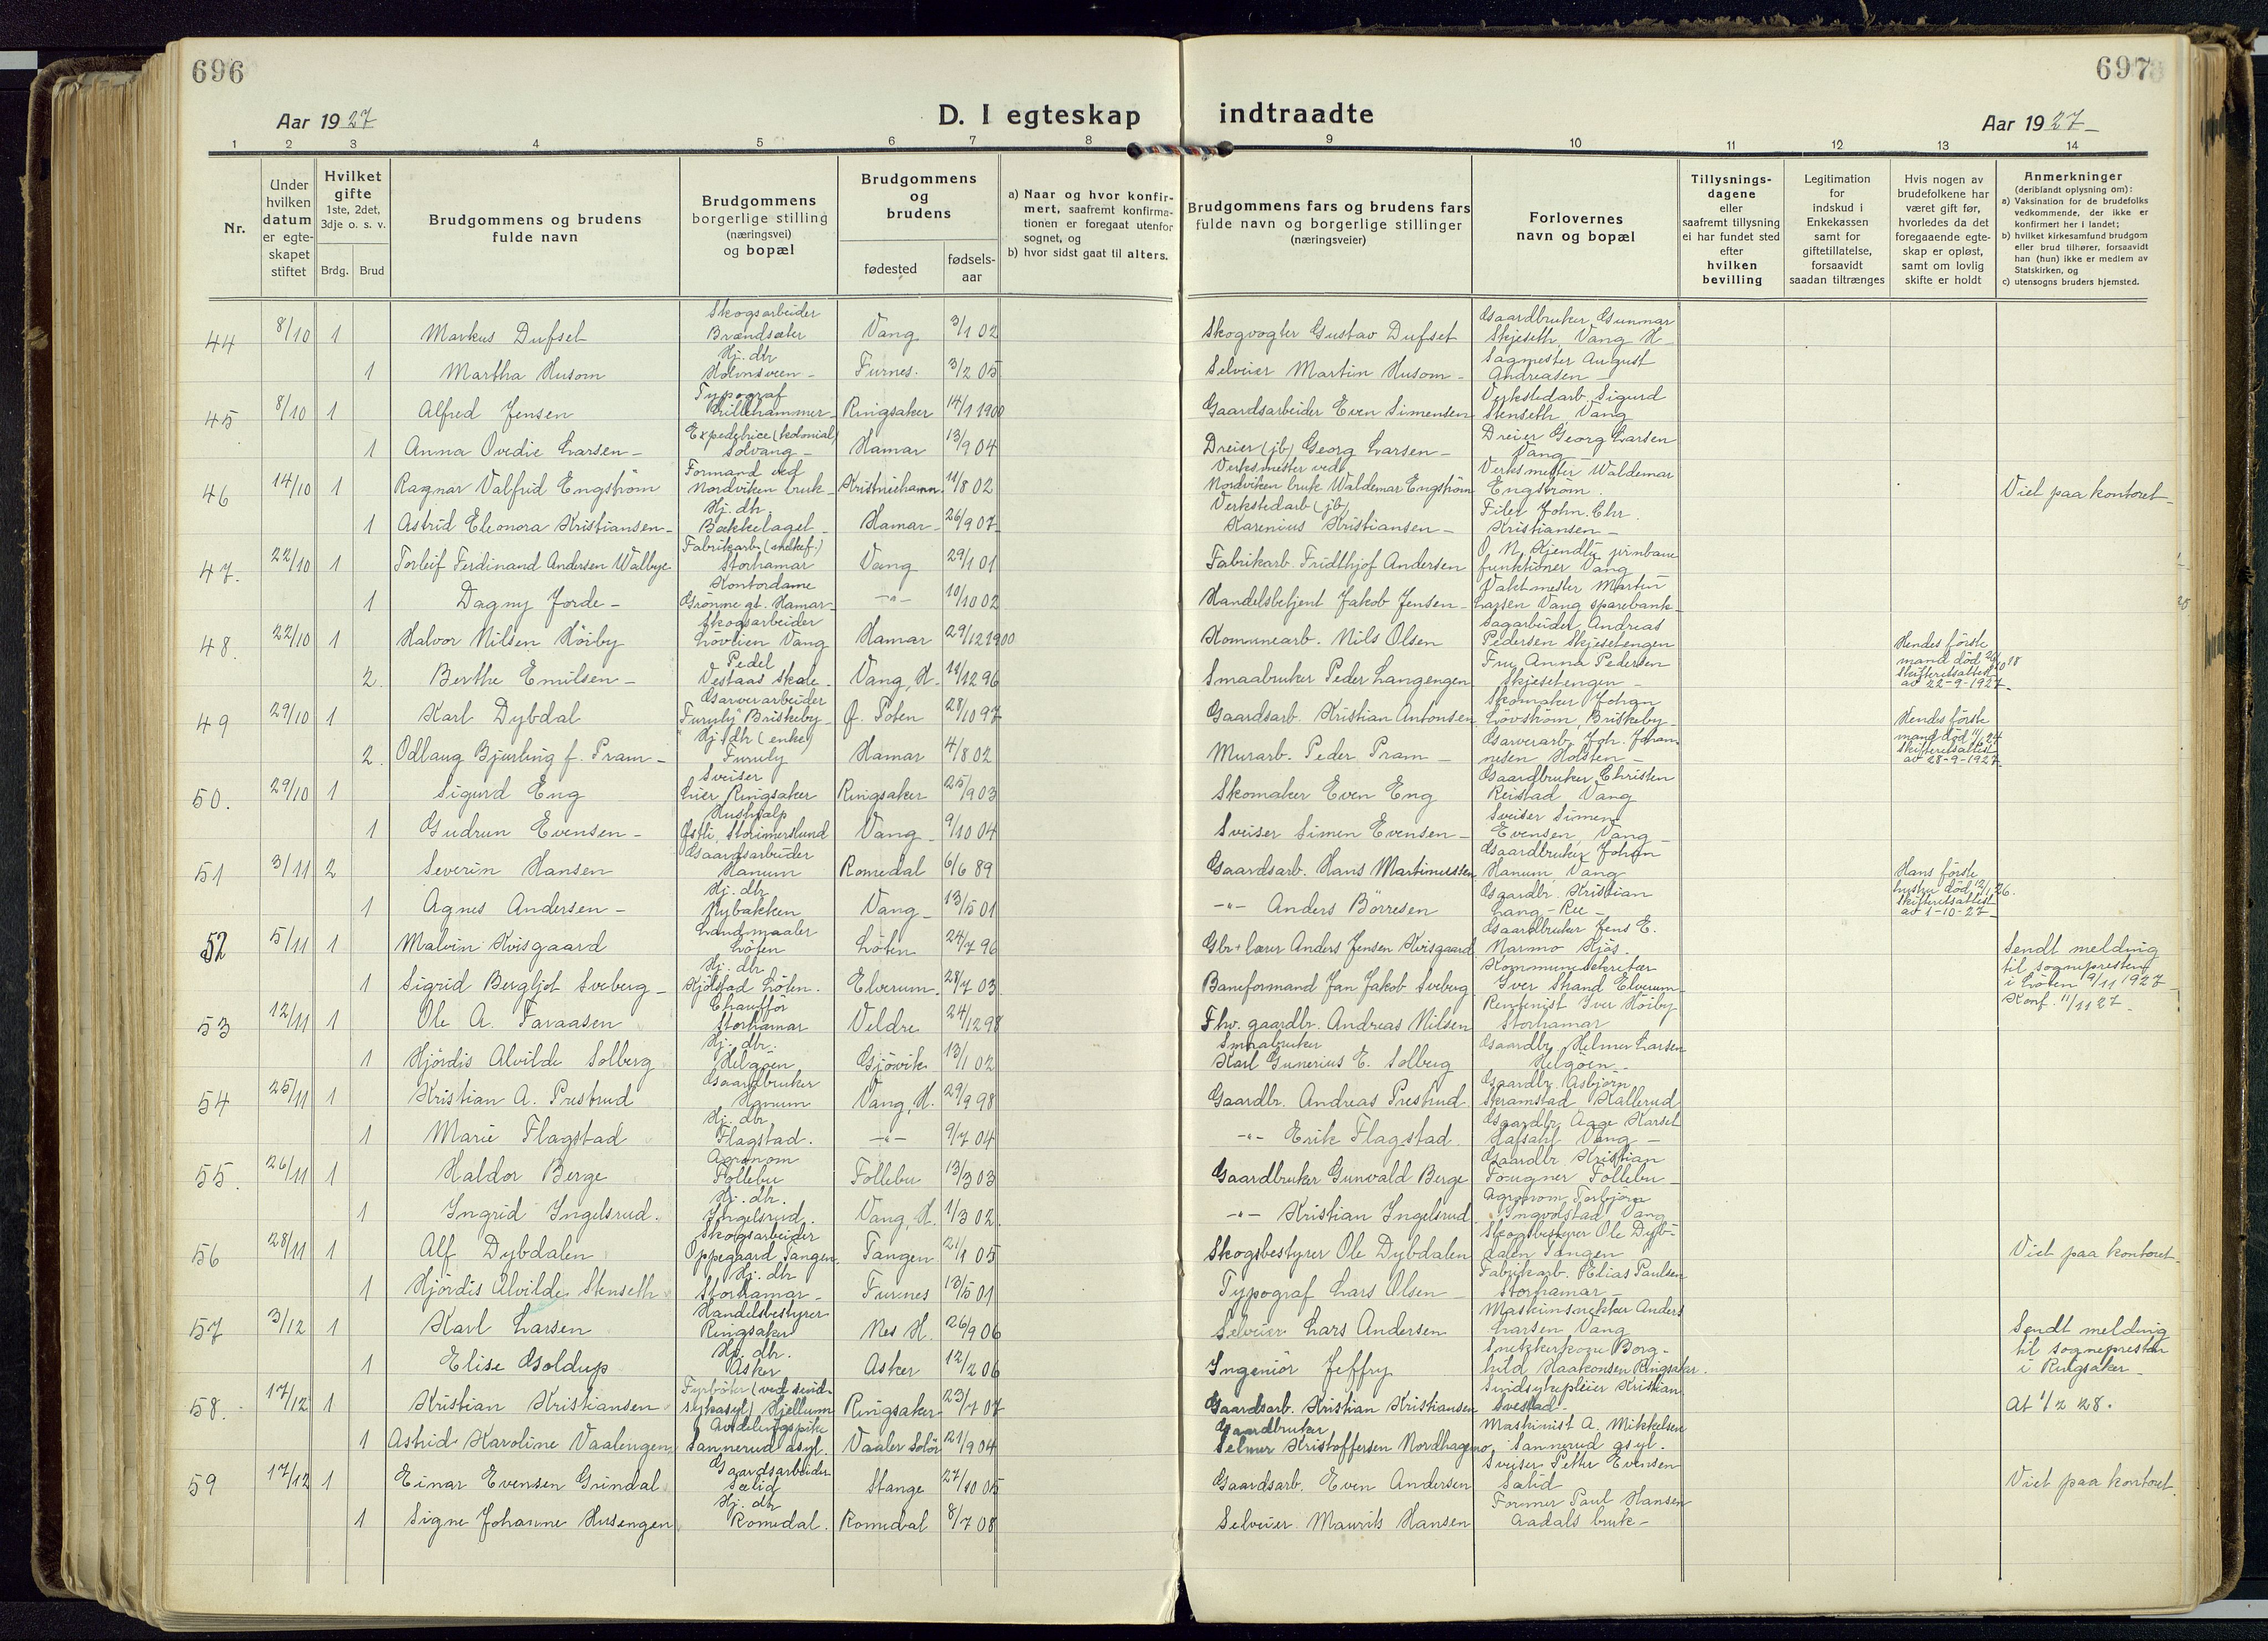 696
697
Aar 1927
D. I egteskap indtraadte
Aar 1927
1 2 3 4 5 6 7 8 9 10 11 12 13 14
Nr.
Under hvilken datum er egteskapet stiftet
Hvilket gifte
1ste, 2det, 3dje o. s. v.
Brdg. Brud
Brudgommens og brudens fulde navn
Brudgommens borgerlige stilling (næringsvei) og bopæl
Brudgommens og brudens
fødested
fødsels-aar
a) Naar og hvor konfir-
mert, saafremt konfirma-
tionen er foregaat utenfor
sognet, og
b) hvor sidst gaat til alters.
Brudgommens fars og brudens fars
fulde navn og borgerlige stillinger
(næringsveier)
Forlovernes
navn og bopæl
Tillysnings-
dagene
eller
saafremt tillysning
ei har fundet sted
efter
hvilken
bevilling
Legitimation
for
indskud i
Enkekassen
samt for
giftetillatelse,
forsaavidt
saadan tiltrænges
Hvis nogen av
brudefolkene har
været gift før,
hvorledes da det
foregaaende egte-
skap er opløst,
samt om lovlig
skifte er holdt
Anmerkninger
(deriblandt oplysning om):
a) Vaksination for de brudefolks
vedkommende, der ikke er
konfirmert her i landet;
b) hvilket kirkesamfund brudgom
eller brud tilhører, forsaavidt
han (hun) ikke er medlem av
Statskirken, og
c) utensogns bruders hjemsted.
44 8/10 1 Markus Dufset Skogsarbeider Brændsæter Vang 3/1 02 Skogvogter Gustav Dufset Gaardbruker Gunmar Skjeseth, Vang H
1 Martha Husom Hj. dtr Holmsveen - Furnes. 3/2 05 Selveier Martin Husom - Sagmester August Andreasen
45 8/10 1 Alfred Jensen Typograf Lillehammer Ringsaker 14/1 1900 Gaardsarbeider Even Simensen Verkstedarb. Sigurd Stenseth Vang
1 Anna Ovedie Larsen - Expeditrice (kolonial) Solvang - Hamar 13/9 04 Dreier (jb) Georg Larsen - Dreier Georg Larsen Vang -
46 14/10 1 Ragnar Valfrid Engström Formand ved Nordviken bruk Kristinehamn 11/8 02 Verksmester ved Nordviken bruk Waldemar Engström Verksmester Waldemar Engström. Viet paa kontoret
1 Astrid Eleonora Kristiansen - Hj. dtr. Bækkelaget - Hamar - 26/9 07 Verkstedarb (jb) Karenius Kristiansen - Filer John. Chr. Kristiansen -
47. 22/10 1 Torleif Ferdinand Andersen Walbye Fabrikarb. (melkef.) Storhamar Vang 29/1 01 Fabrikarb. Fridthjof Andersen O. N. Kjendli jernbane funktionær Vang
1 Dagny Jorde - Kontordame Grönne gt. Hamar - -"- 10/10 02 Handelsbetjent Jakob Jensen - Vaktmester Martin Larsen Vang sparebank
48. 22/10 1 Halvor Nilsen Höiby Skogsarbeider Lövlien Vang Hamar 29/12 1900 Komunearb. Nils Olsen Sagarbeider Andreas Pedersen Skjesetengen Hendes förste
2. Berthe Emilsen - Pedel Vestaas Skole - Vang, H. 11/12 96 Smaabruker Peder Langengen Fru Anna Pedersen Skjesetengen - mand död 26/10 18 Skifteretsattest av 22-9-1927.
49 29/10 1 Karl Dybdal Garverarbeider Furuly Briskeby - Ö. Toten 28/10 97 Gaardsarb. Kristian Antonsen Skomaker Johan Lövström, Briskeby Hendes förste
2. Odlaug Bjurling f. Pram - Hj. dtr (enke) Furuly Hamar 4/8 02 Murarb. Peder Pram - Garverarb. Joh. Johannesen Holsten - mand död 11/1 24 Skifteretsattest av 28-9-1927.
50. 29/10 1 Sigurd Eng Sveiser Lier Ringsaker Ringsaker 25/9 03 Skomaker Even Eng Gaardbruker Christen Reistad Vang
1 Gudrun Evensen - Hushjælp Östli, Storimerslund Vang - 9/10 04 Sveiser Simen Evensen - Sveiser Simen Evensen, Vang -
51 3/11 2 Severin Hansen Gaardsarbeider Hanum Romedal 6/6 89 Gaardsarb. Hans Martinussen Gaardbruker Johan Hanum Vang Hans förste
1 Agnes Andersen - Hj. dtr. Nybakken Vang - 13/5 01 -"- Anders Börresen Gaardbr. Kristian Lang-Ree - hustru död 12/1 26. Skifteretsattest av 1-10-27 -
52 5/11 1 Malvin Kvisgaard Landmaaler Löten Löten 24/7 96 Gbr + lærer Anders Jensen Kvisgaard Gaardbruker Jens E. Narmo Hjös. Sendt melding til sognepresten
1 Sigrid Bergljot Sveberg - Hj. dtr. Kjölstad Löten. Elverum. 28/7 03. Baneformand Jan Jakob Sveberg Kommunesekretær Iver Strand Elverum - i Löten 9/11 1927 - Konf. 11/11 27 -
53 12/11 1 Ole A. Tavaasen Chaufför Storhamar Veldre 24/12 98 Fhv. gaardbr. Andreas Nilsen Rentenist Iver Höiby Storhamar
1 Hjördis Alvilde Solberg Hj. dtr. Helgöen Gjövik 13/1 02 Smaabruker Karl Gunerius E. Solberg Gaardbr. Helmer Larsen Helgöen -
54 25/11 1 Kristian A. Prestrud Gaardbruker Hanum Vang, H. 29/9 98 Gaardbr. Andreas Prestrud Gaardbr. Asbjörn Skramstad Kallerud
1 Marie Flagstad Hj. dtr. Flagstad. -"- 9/7 04 -"- Erik Flagstad Gaardbr. Aage Karset Hafsahl Vang -
55. 26/11 1 Haldor Berge Agronom Follebu Follebu 13/3 03 Gaardbruker Gunvald Berge Gaardbr. Kristian Fougner Follebu -
1 Ingrid Ingelsrud. Hj. dtr. Ingelsrud. Vang, H. 1/3 02. -"- Kristian Ingelsrud Agronom Torbjörn Ingvoldstad Vang
56 28/11 1 Alf Dybdalen Skogsarbeider Oppegaard Tangen. Tangen 21/1 05 Skogsbestyrer Ole Dybdalen Skogsbestyrer Ole Dybdalen Tangen Viet paa kontoret
1 Hjördis Alvilde Stenseth Hj. dtr Storhamar - Furnes 13/5 01 Typograf Lars Olsen - Fabrikarb. Elias Paulsen Storhamar -
57 3/12 1 Karl Larsen Handelsbestyrer Ringsaker Nes H. 26/9 06 Selveier Lars Andersen Maskinsnekker Anders Larsen Vang Sendt melding
1 Elise Goldup Hj. dtr. Asker Asker 12/2 06 Ingeniör Jeffry Snekkerkone Borghild Haakonsen Ringsaker. til sognepresten i Ringsaker -
58. 17/12 1 Kristian Kristiansen Fyrböter (ved sindsykeasyl) Hjellum Ringsaker 23/7 07 Gaardsarb. Kristian Kristiansen Sindsykepleier Kristian Svestad - At 1/2 28.
1 Astrid Karoline Vaalengen Avdelingspike Sannerud asyl. Vaaler Solör 21/9 04 Gaardbruker Selmer Kristoffersen Nordhagen Maskinist A. Mikkelsen Sannerud asyl.
59 17/12 1 Einar Evensen Grindal Gaardsarbeider Sælid Stange 27/10 05 Gaardsarb. Even Andersen Sveiser Petter Evensen Sælid Viet paa kontoret.
1 Signe Johanne Husengen Hj. dtr Romedal. Romedal 8/7 08 Selveier Maurits Hansen Former Paul Hansen Aadals bruk -